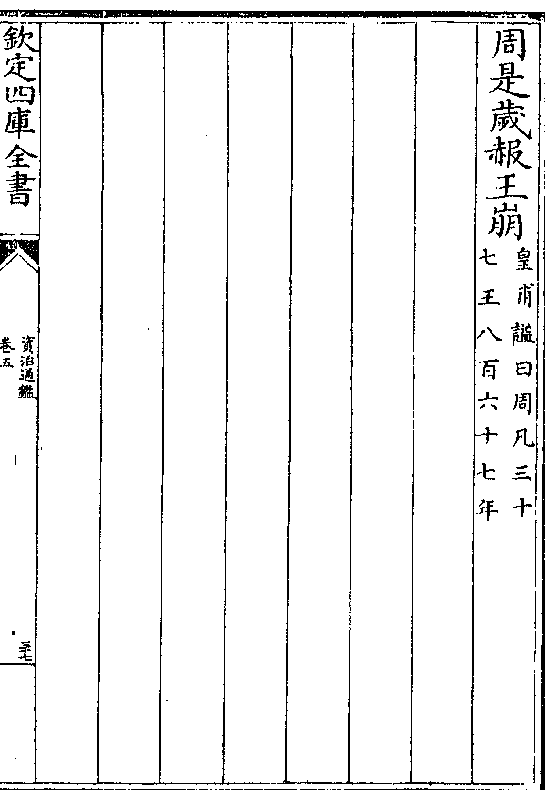 周是歲赧王崩
皇甫謐曰周凡三十
七王八百六十七年
欽定四庫全書
資治通鑑
卷五
三七